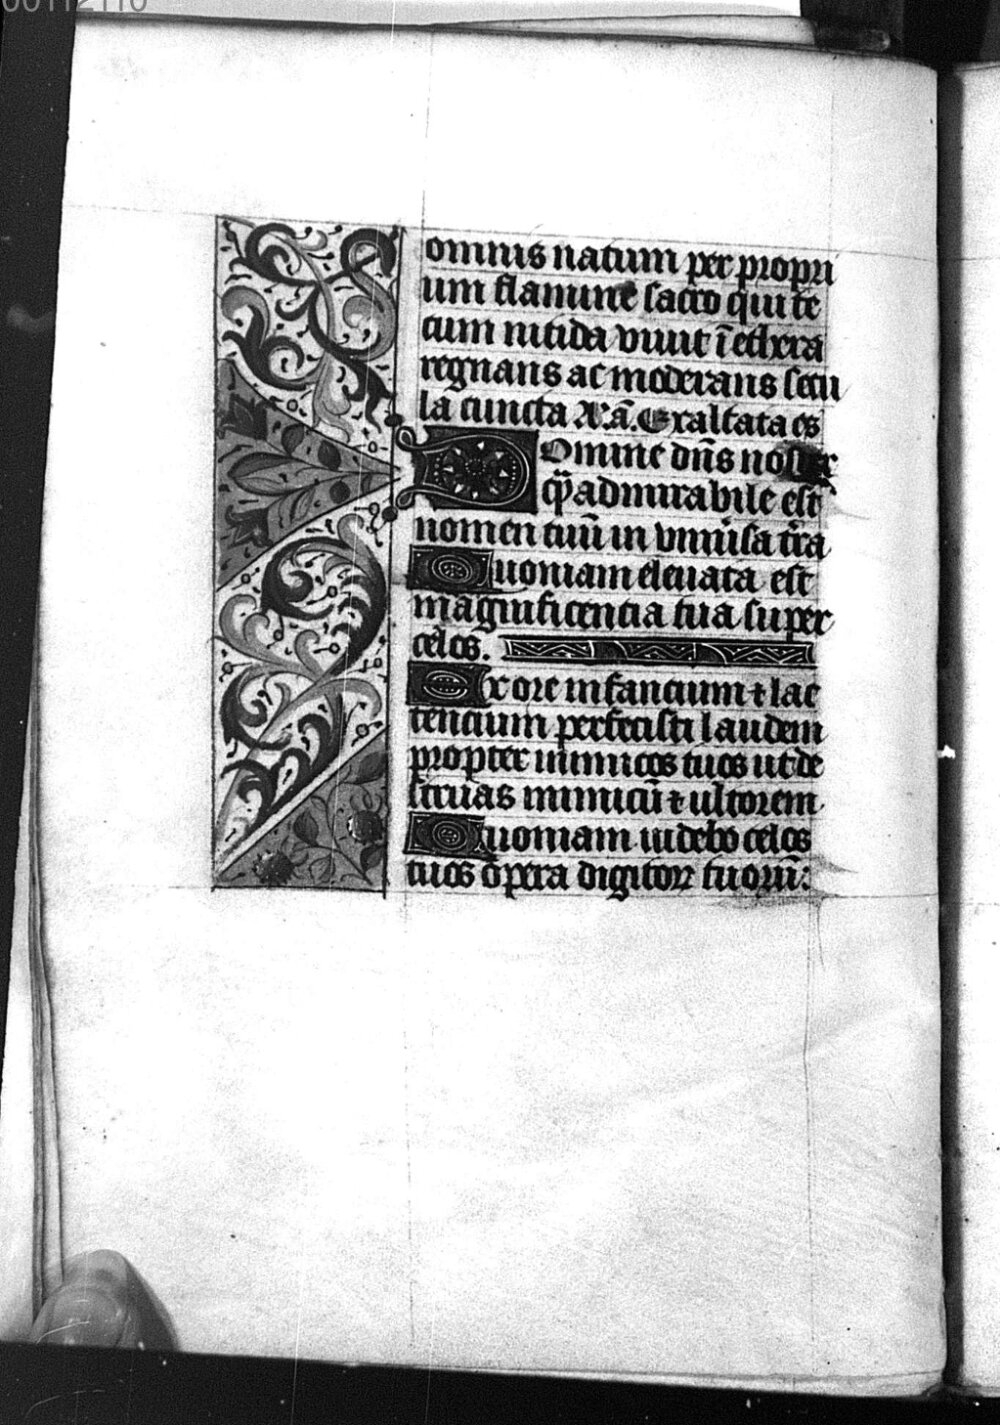 omnis natum per propri
um flamine sacro qui te
cum nitida viuit ī ethera
regnans ac moderans secu
la cuncta ā. Exaltata es
Domine dn̄s noster
q̄ȝ admirabile est
nomen tuū in vniūsa tr̄a
Quoniam eleuata est
magnificentia tua super
celos.
Ex ore infancium ⁊ lac
tencium perfecisti laudem
propter inimicos tuos ut de
struas inimicū ⁊ ultorem
Quoniam uidebo celos
tuos opera digitoꝝ tuoꝝ: